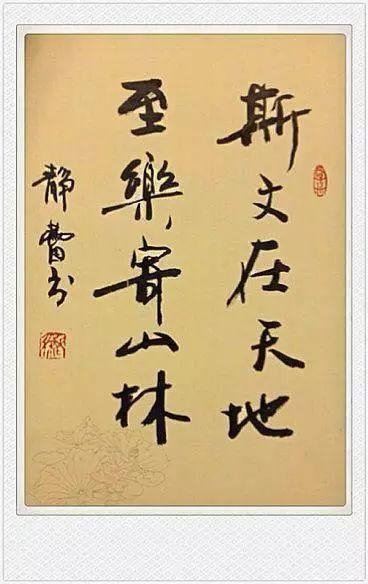 斯文在天地
至樂寄山林
静书